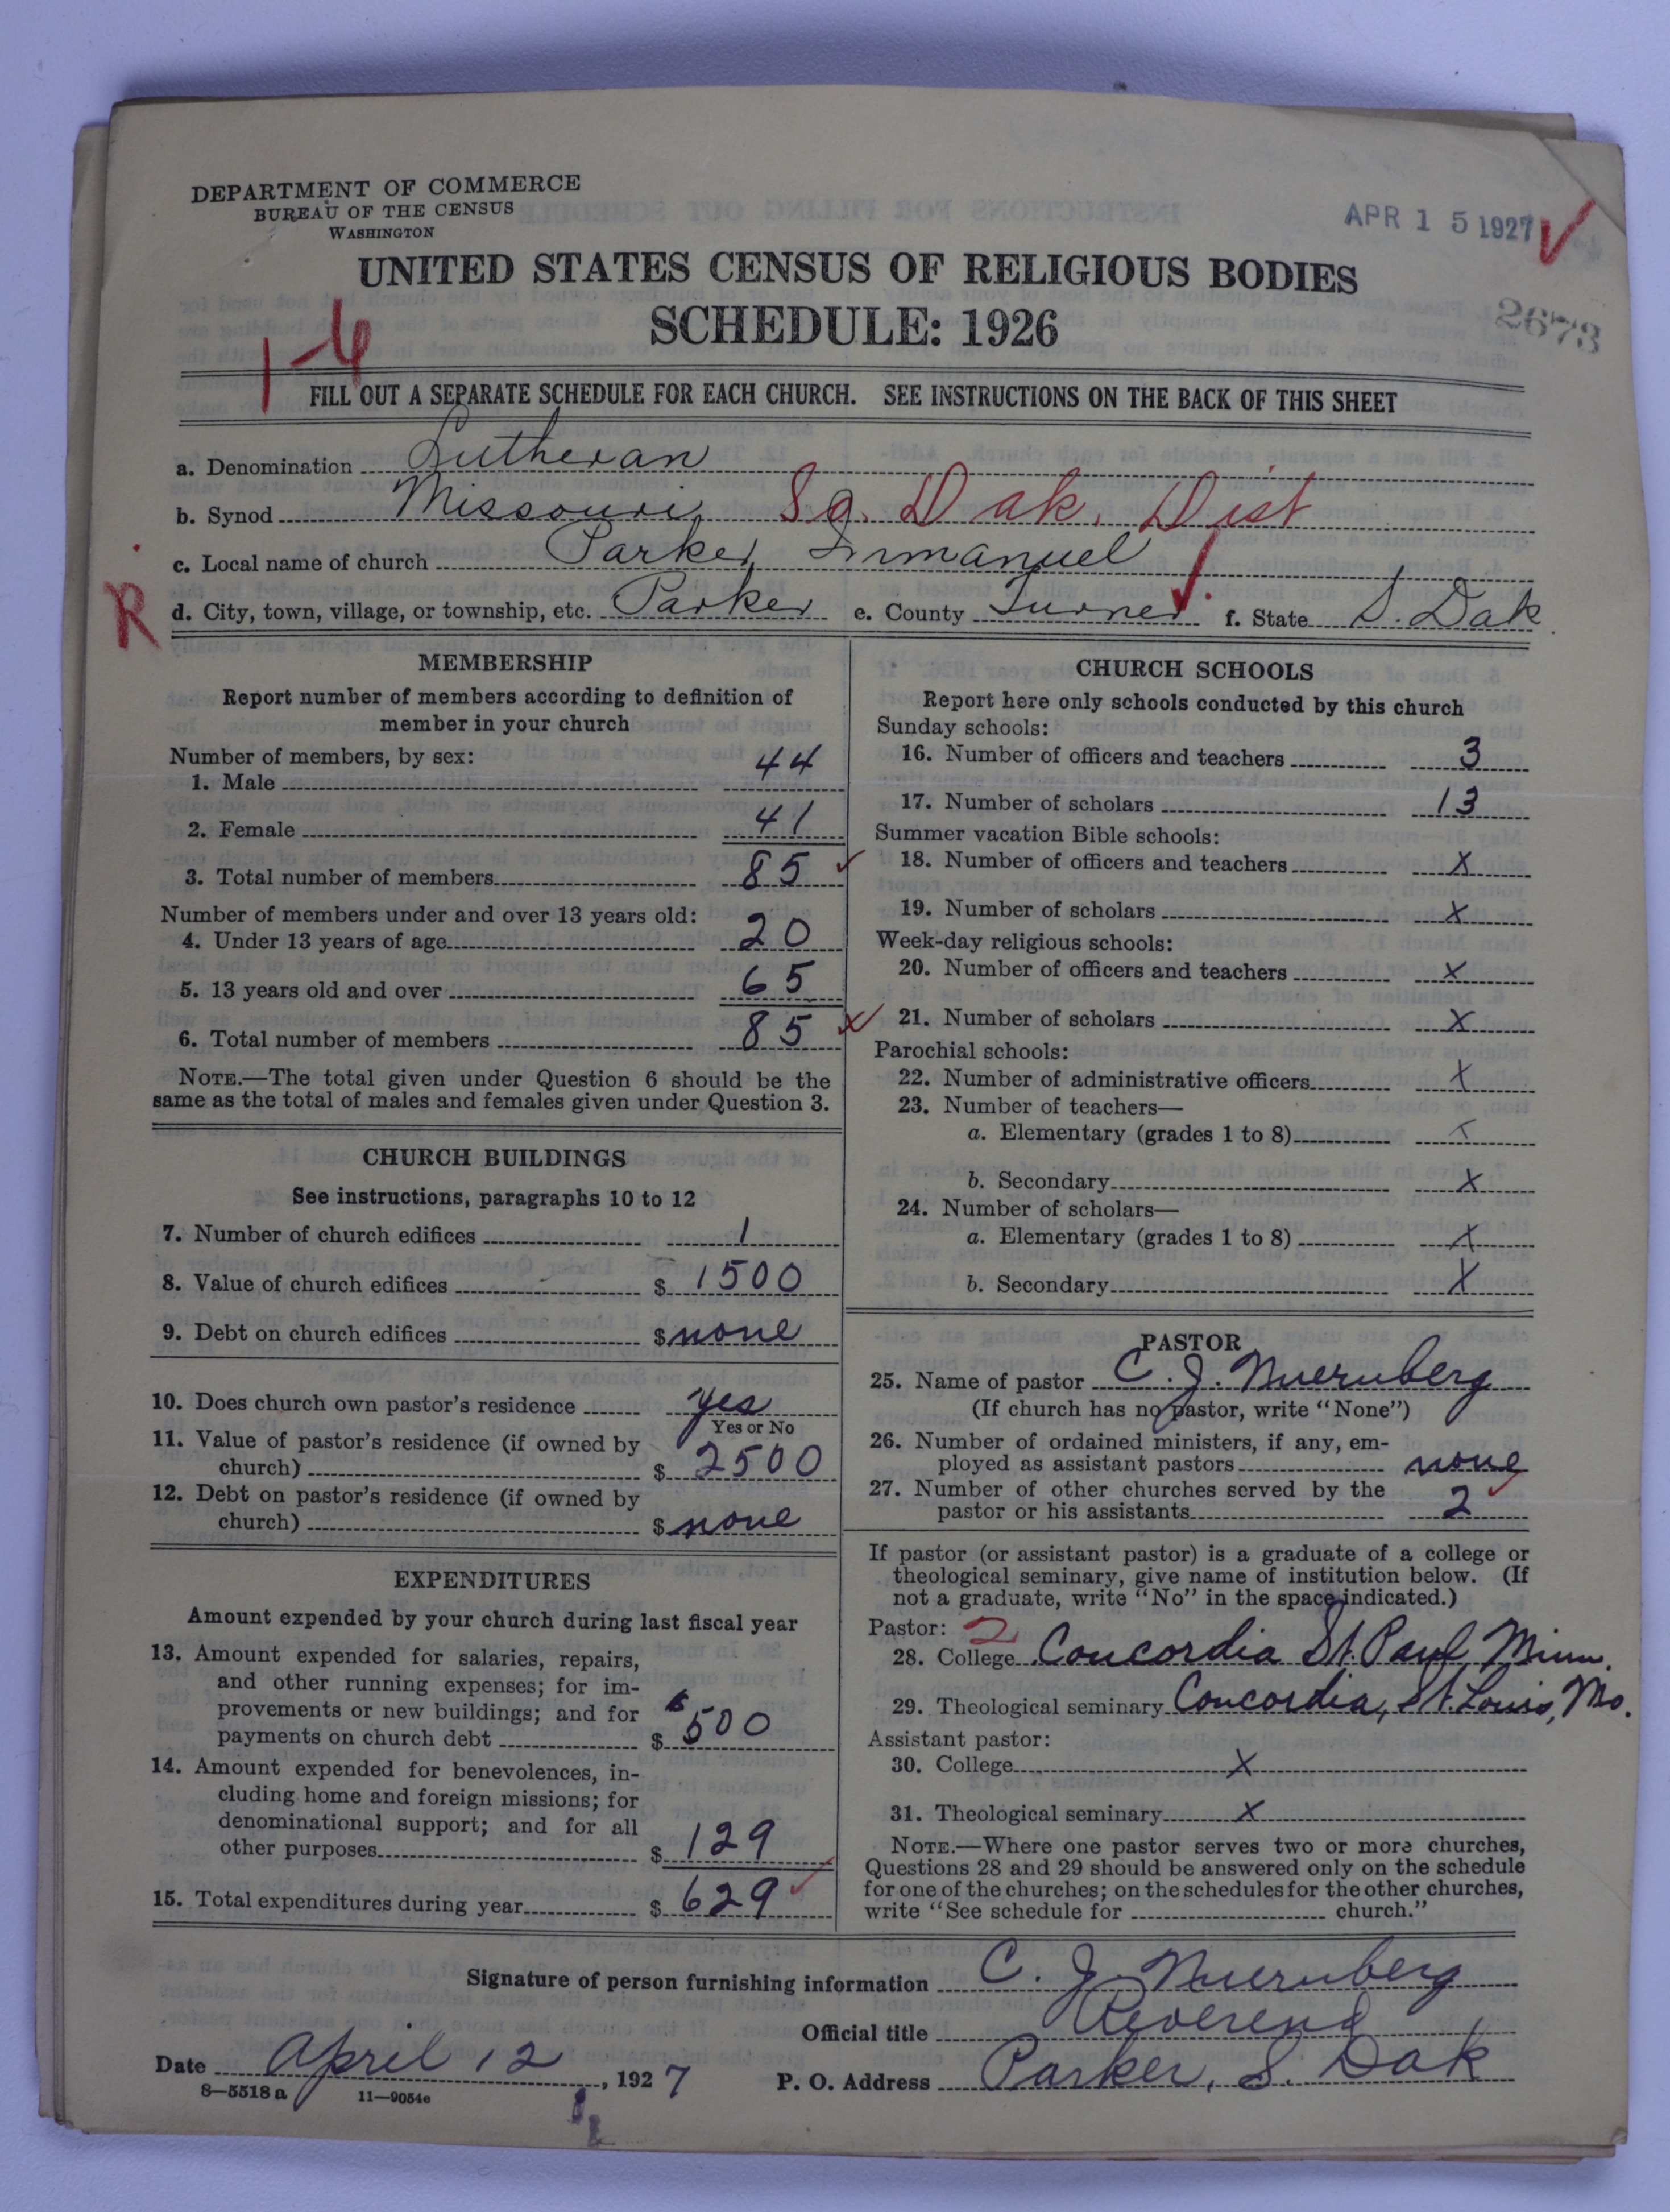 DEPARTMENT OF COMMERCE
BUREAU OF THE CENSUS
WASHINGTON
APR 15 1927
UNITED STATES CENSUS OF RELIGIOUS BODIES
SCHEDULE: 1926
2673
1-6
FILL OUT A SEPARATE SCHEDULE FOR EACH CHURCH. SEE INSTRUCTIONS ON THE BACK OF THIS SHEET
a. Denomination Lutheran
b. Synod Missouri So. Dak. Dist
c. Local name of church Parker Immanuel
R
d. City, town, village, or township, etc. Parker e. County Turner f. State S. Dak.
MEMBERSHIP
Report number of members according to definition of
member in your church
Number of members, by sex:
1. Male 44
2. Female 41
3. Total number of members 85
Number of members under and over 13 years old:
4. Under 13 years of age 20
5. 13 years old and over 65
6. Total number of members 85
NOTE.—The total given under Question 6 should be the
same as the total of males and females given under Question 3.
CHURCH BUILDINGS
See instructions, paragraphs 10 to 12
7. Number of church edifices 1
8. Value of church edifices $ 1500
9. Debt on church edifices $ none
10. Does church own pastor's residence yes
Yes or No
11. Value of pastor's residence (if owned by
church) $ 2500
12. Debt on pastor's residence (if owned by
church) $ none
EXPENDITURES
Amount expended by your church during last fiscal year
13. Amount expended for salaries, repairs,
and other running expenses; for im-
provements or new buildings; and for
payments on church debt $ 500
14. Amount expended for benevolences, in-
cluding home and foreign missions; for
denominational support; and for all
other purposes $ 129
15. Total expenditures during year $ 629
CHURCH SCHOOLS
Report here only schools conducted by this church
Sunday schools:
16. Number of officers and teachers 3
17. Number of scholars 13
Summer vacation Bible schools:
18. Number of officers and teachers X
19. Number of scholars X
Week-day religious schools:
20. Number of officers and teachers X
21. Number of scholars X
Parochial schools:
22. Number of administrative officers X
23. Number of teachers—
a. Elementary (grades 1 to 8) X
b. Secondary X
24. Number of scholars—
a. Elementary (grades 1 to 8) X
b. Secondary X
PASTOR
25. Name of pastor C. J. Nuernberg
(If church has no pastor, write "None")
26. Number of ordained ministers, if any, em-
ployed as assistant pastors none
27. Number of other churches served by the
pastor or his assistants 2
If pastor (or assistant pastor) is a graduate of a college or
theological seminary, give name of institution below. (If
not a graduate, write "No" in the space indicated.)
Pastor: 2
28. College Concordia St. Paul Minn.
29. Theological seminary Concordia, St. Louis, Mo.
Assistant pastor:
30. College X
31. Theological seminary X
NOTE.—Where one pastor serves two or more churches,
Questions 28 and 29 should be answered only on the schedule
for one of the churches; on the schedules for the other churches,
write "See schedule for church."
Signature of person furnishing information C. J. Nuernberg
Official title Reverend
Date April 12, 1927 P. O. Address Parker, S. Dak
8—5518 a 11—9054e